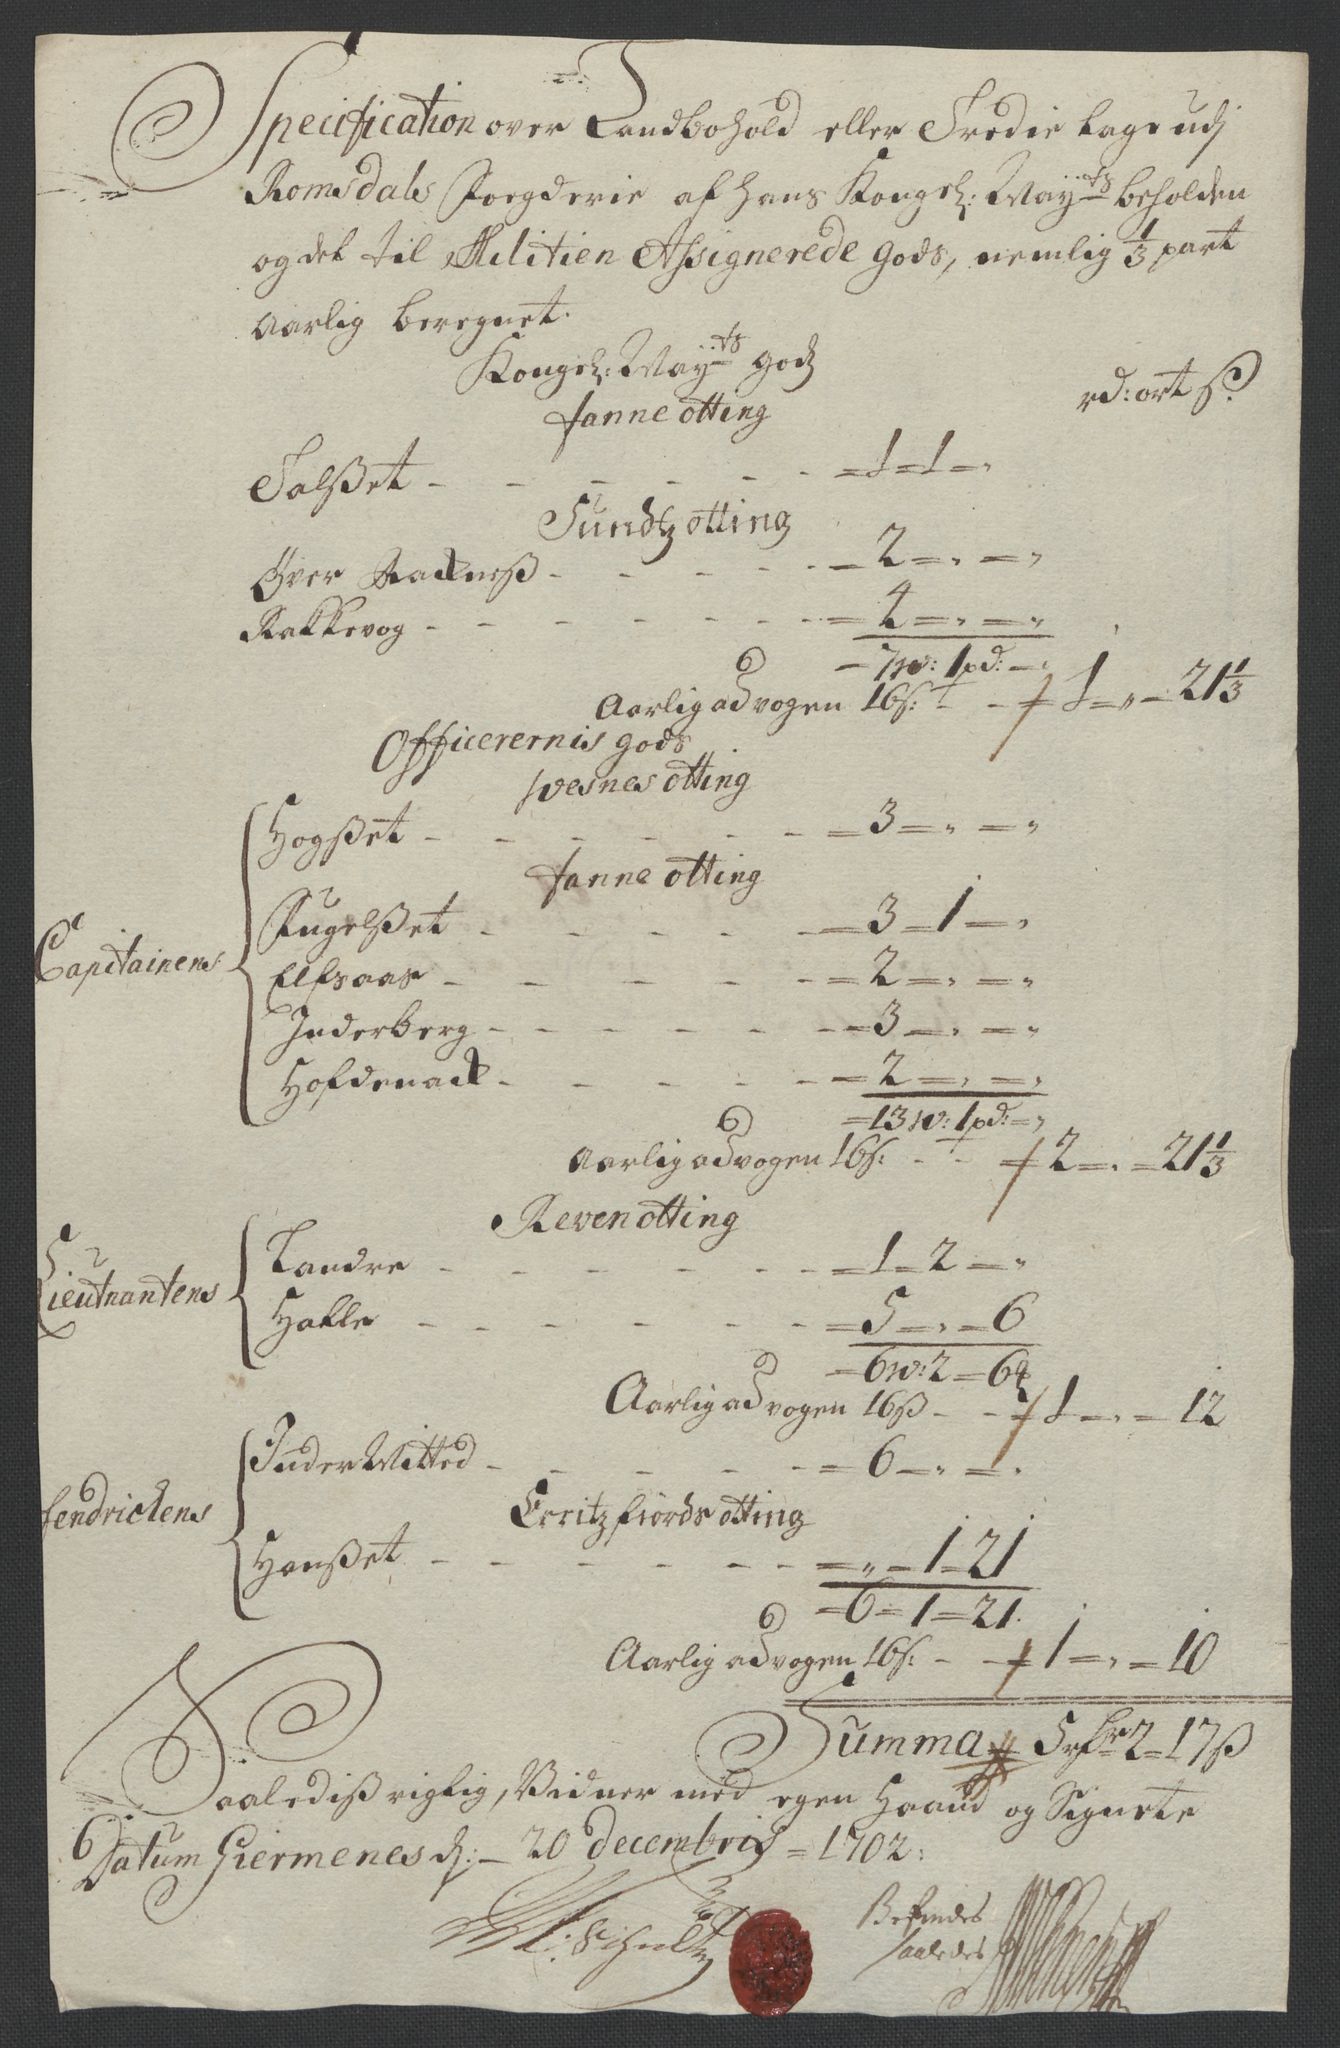 Specification over Landbohold eller Tredie tage udj
Romsdals Foegderie af hans Kongel: Mayts beholden
og det til Militien Assignerede Gods, nemlig 1/3 part
Aarlig beregnet.
Kongel: Mayts godz
rd: ort s:
Fanne otting
Talßet - - - - - = 1 = 1 = "
Sundtz otting
Over Rackneß - - - - - = 2 = " = "
Rakkevog - - - - - = 4 = " = "
= 7 w: 1 pd: = "
Aarlig ad vogen 16 s: - - 1 = " = 21 1/3
Officerernis gods
Wesnes otting
Hogßet - - - - - = 3 = " = "
Fanne otting
Capitainens
Fugelßet - - - - - = 3 = 1 = "
Elfsaas - - - - - = 2 = " = "
Inderberg - - - - - = 3 = " = "
Hofdenack - - - - - = 2 = " = "
= 13 w: 1 pd: = "
Aarlig ad vogen 16 s: - - 2 = " = 21 1/3
Reven otting
Lieutnantens
Landre - - - - - = 1 = 2 = "
Halle - - - - - = 5 = " = 6
= 6 w: 2 = 6
Aarlig ad vogen 16 ß - - 1 = " = 12
Inder Mitted - - - - - = 6 = " = "
Fendrickens
Eeritzfiords otting
Hanßet - - - - - = " = 1 = 21
= 6 = 1 = 21.
Aarlig ad vogen 16 s: - - 1 = " = 10
Summa 5 rdr 2 = 17 ß
Saaledis rigtig, Vidner med egen Haand og Signete
Datum Giermenes d: 20 decembris = 1702:
Schultz
Befindes
saaledes